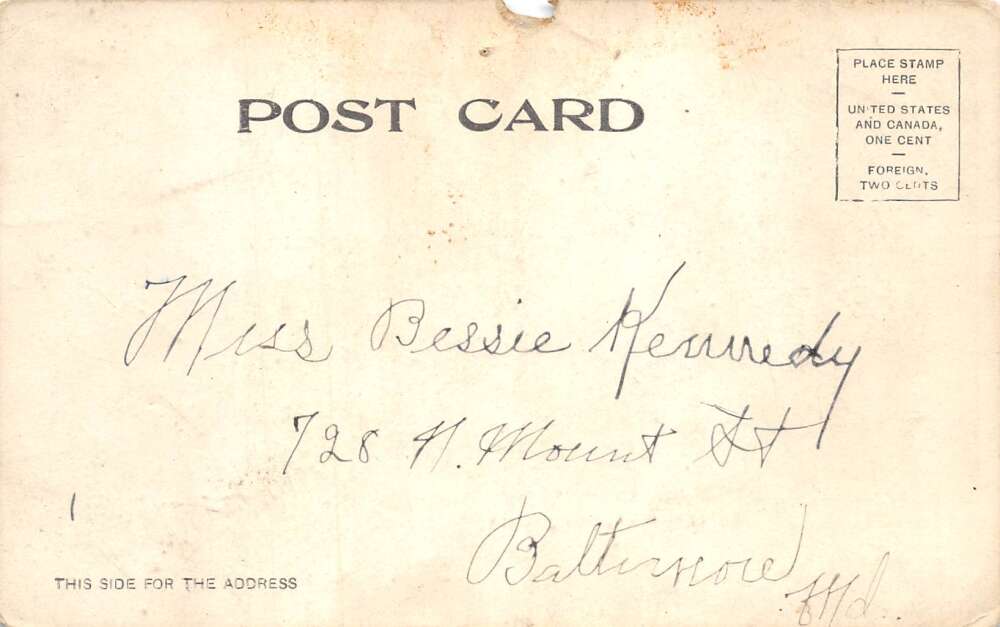 POST CARD
PLACE STAMP
HERE
UNITED STATES
AND CANADA,
ONE CENT
FOREIGN,
TWO CENTS
Miss Bessie Kennedy
728 N. Mount St
Baltimore
Md.
THIS SIDE FOR THE ADDRESS